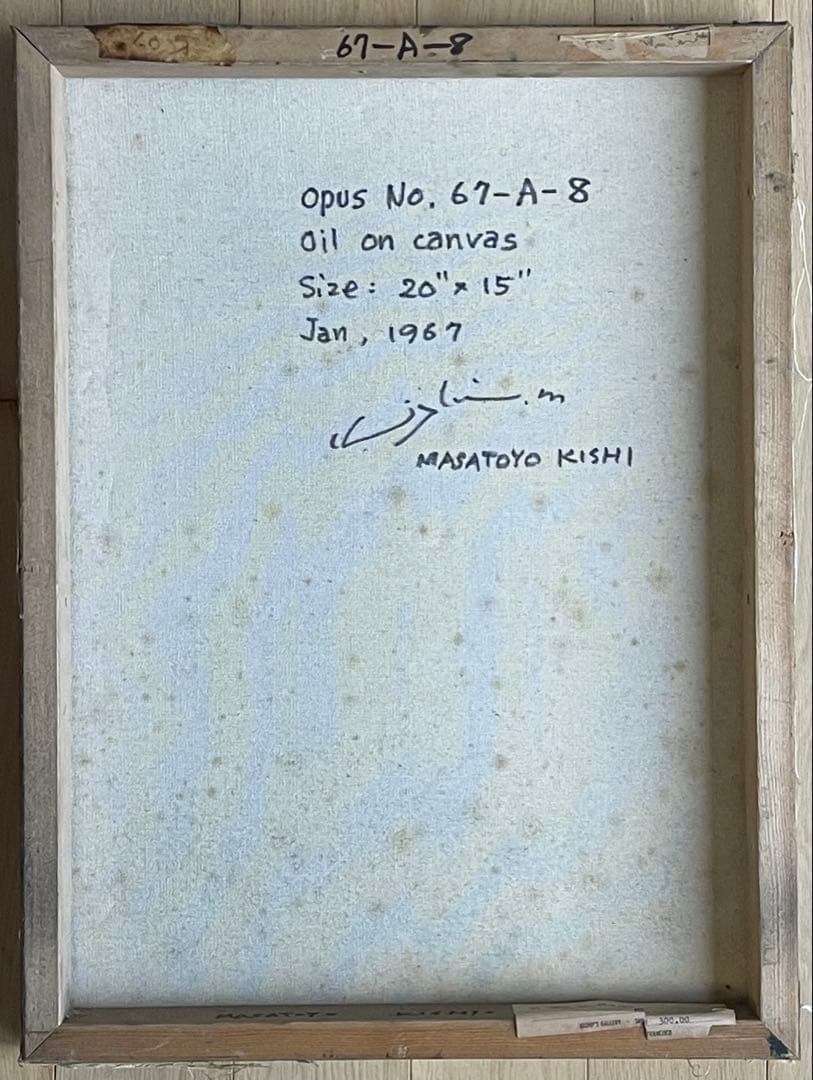 67-A-8
Opus No. 67-A-8
Oil on canvas
Size: 20" x 15"
Jan, 1967
MASATOYO KISHI
MASATOYO KISHI
300.00